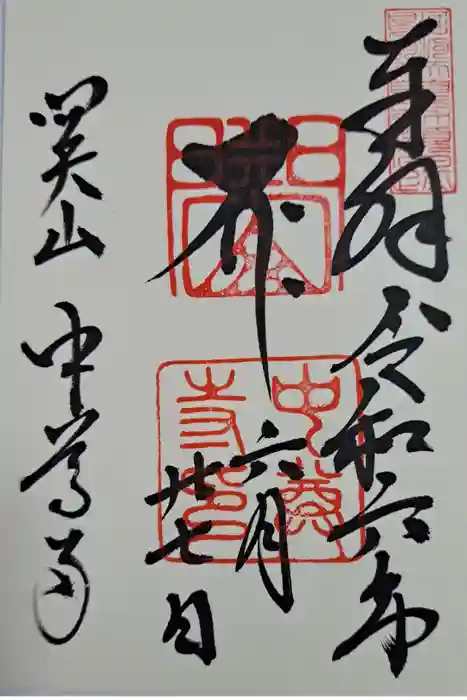 奉拝 令和六年
六月
廿七日
関山
中尊
寺印
関山 中尊寺